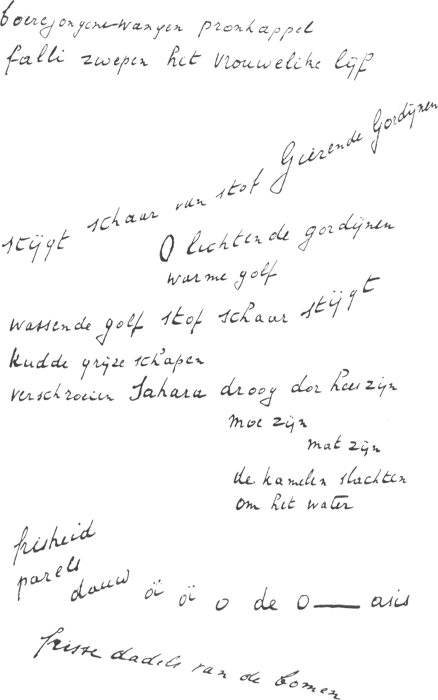 boerejongenswangen pronkappel
falli zwepen het vrouwelike lijf
stijgt schaar van stof Gierende Gordijnen
O lichtende gordijnen
warme golf
wassende golf stof schaar stijgt
kudde grijze schapen
verschroeien Sahara droog dor hees zijn
moe zijn
mat zijn
de kamelen slachten
om het water
frisheid
parels
dauw öi öi o de o—asis
frisse dadels van de bomen